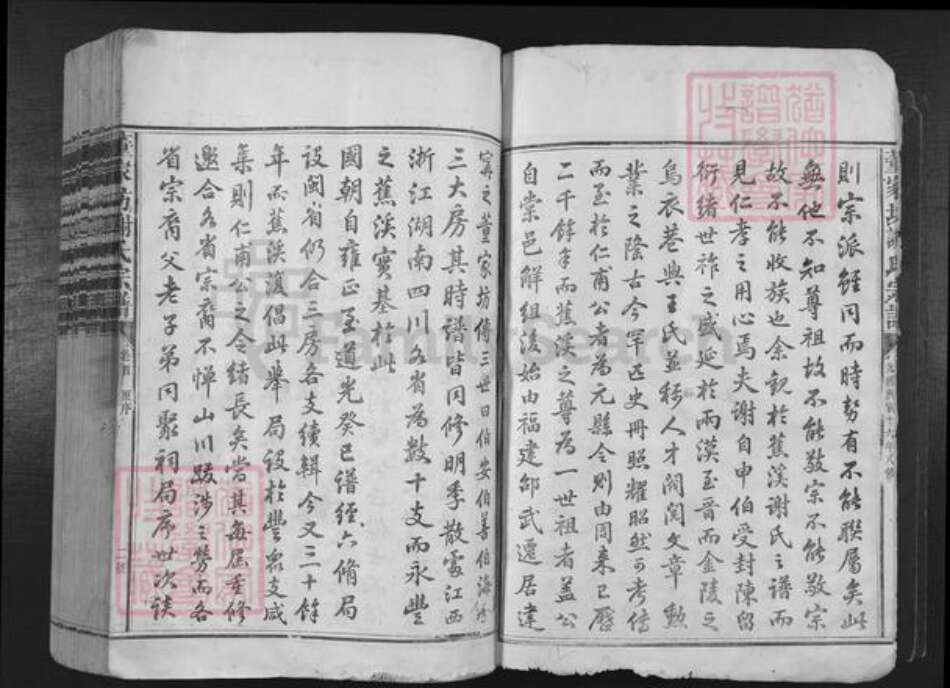 則宗派雖同而時勢有不能聯屬矣此
無他不知尊祖故不能敬宗不能敬宗
故不能收族也余觀於蕉溪謝氏之譜而
見仁孝之用心焉夫謝自申伯受封陳留
衍緒世祚之盛延於兩漢至晉而金陵之
烏衣巷與王氏並稱人才閥閱文章勲
業之隆古今罕匹史冊照耀昭然可考傳
而至於仁甫公者為元縣令則由周來已歷
二千餘年而蕉溪之尊為一世祖者蓋公
自棠邑解組後始由福建邵武遷居建
寧之董家坊傳三世曰伯安伯善伯海為
三大房其時譜皆同修明季散處江西
浙江湖南四川各省為數十支而永豐
之蕉溪實基於此
國朝自雍正至道光癸巳譜經六脩局
設閩省仍合三房各支續輯今又三十餘
年而蕉溪復倡此舉局設於豐眾支咸
集則仁甫公之令緒長矣當其每屆重修
邀合各省宗裔不憚山川跋涉之勞而各
省宗裔父老子弟同聚祠局序世次談
董家坊謝氏宗譜
FamilySearch